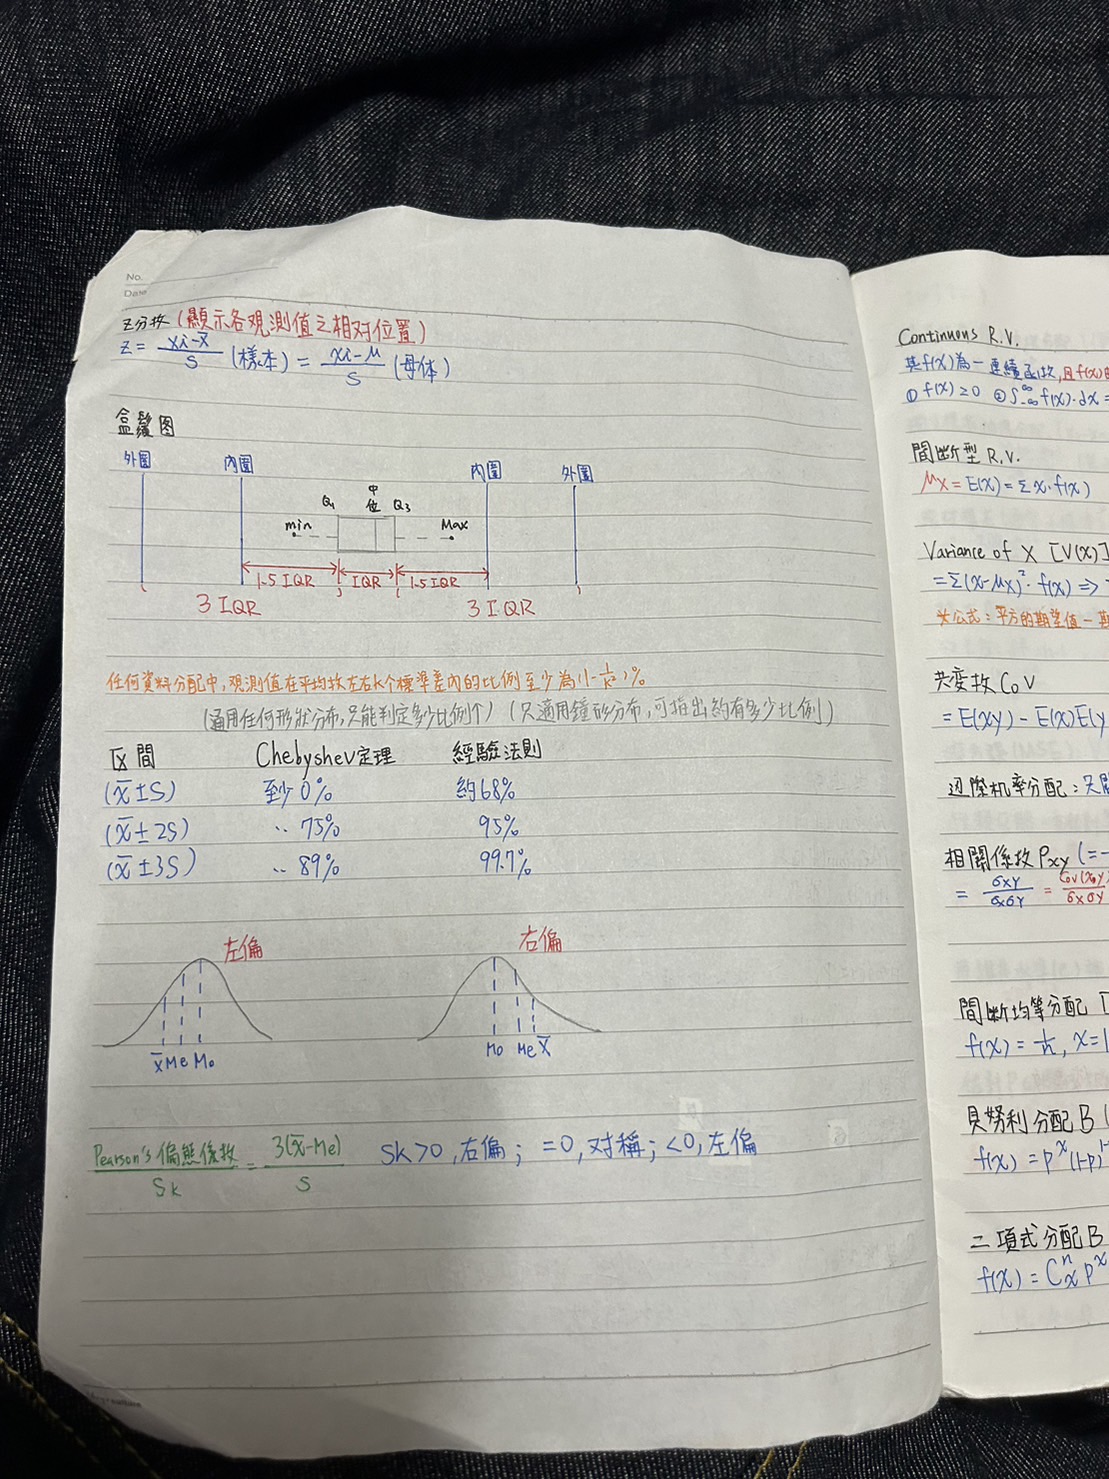 No.
Date
Z分枚(顯示各观測值之相対位置)
Z = xi-x̄/S (樣本) = xi-μ/S (母体)
盒鬚图
外圍 內圍 內圍 外圍
Q1 中位 Q3
min Max
1.5 IQR IQR 1.5 IQR
3 IQR 3 IQR
任何資料分配中,观測值在平均枚左右k个標準差內的比例至少為(1-1/k²)%
(適用任何形狀分布,只能判定多少比例个) (只適用鐘形分布,可指出約有多少比例)
区間 Chebyshev定理 經驗法則
(x̄±S) 至少0% 約68%
(x̄±2S) ‥ 75% 95%
(x̄±3S) ‥ 89% 99.7%
左偏 右偏
x̄ Me Mo Mo Me x̄
Pearson's偏態係枚/Sk = 3(x̄-Me)/S Sk>0,右偏; =0,对稱; <0,左偏
Continuous R.V.
其f(x)為一連續函枚,且f(x)
① f(x)≥0 ② ∫-∞^∞ f(x)·dx =
間斷型 R.V.
μx = E(x) = Σx·f(x)
Variance of X [V(x)]
= Σ(x-μx)²·f(x) ⇒
*公式:平方的期望值-
共变枚 CoV
= E(xy) - E(x)E(y
边際机率分配:
相關係枚 ρxy (=-
= σxy/σxσy = Cov(x,y)/σxσy
間斷均等分配
f(x) = 1/n, x=1
貝努利分配 B(
f(x) = p^x(1-p)^1-
二項式分配 B
f(x) = C^n_x p^x